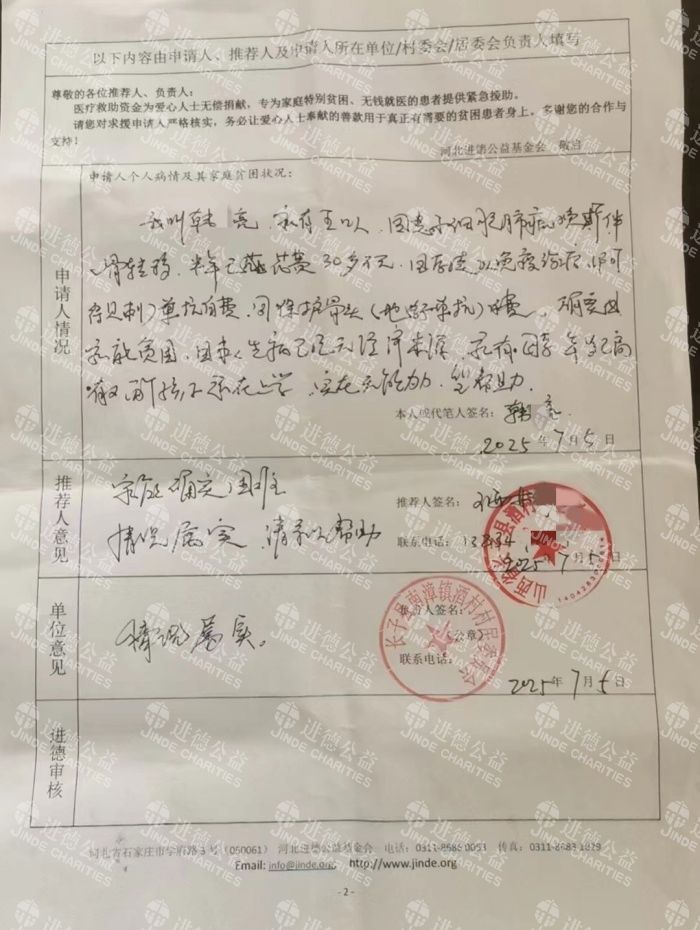 以下内容由申请人、推荐人及申请人所在单位/村委会/居委会负责人填写
尊敬的各位推荐人、负责人：
医疗救助资金为爱心人士无偿捐献，专为家庭特别贫困、无钱就医的患者提供紧急援助。
请您对求援申请人严格核实，务必让爱心人士奉献的善款用于真正有需要的贫困患者身上。多谢您的合作与
支持！
河北进德公益基金会 敬启
申请人情况
申请人个人病情及其家庭贫困状况：
我叫韩 亮 家有五口人 因患小细胞肺癌 伴
骨转移，半年已 花费30多万元
单抗自费，因保护骨头（地舒单抗）自费，确实因
生病已经无经济来源 年纪高
孩子 在上学，实在无能力，望帮助．
本人或代笔人签名：韩 亮
2025年7月5日
推荐人意见
家庭确实困难
情况属实 请予以帮助
推荐人签名：
联系电话：
2025年7月5日
山西省长子县
单位意见
情况属实。
负责人签名：
（公章）
联系电话：
长子县南漳镇酒村村民委员会
2025年7月5日
进德审核
河北省石家庄市学府路3号（050061） 河北进德公益基金会 电话：0311-8686 0053 传真：0311-8683 1829
Email: info@jinde.org http://www.jinde.org
- 2 -
进德公益
JINDE CHARITIES